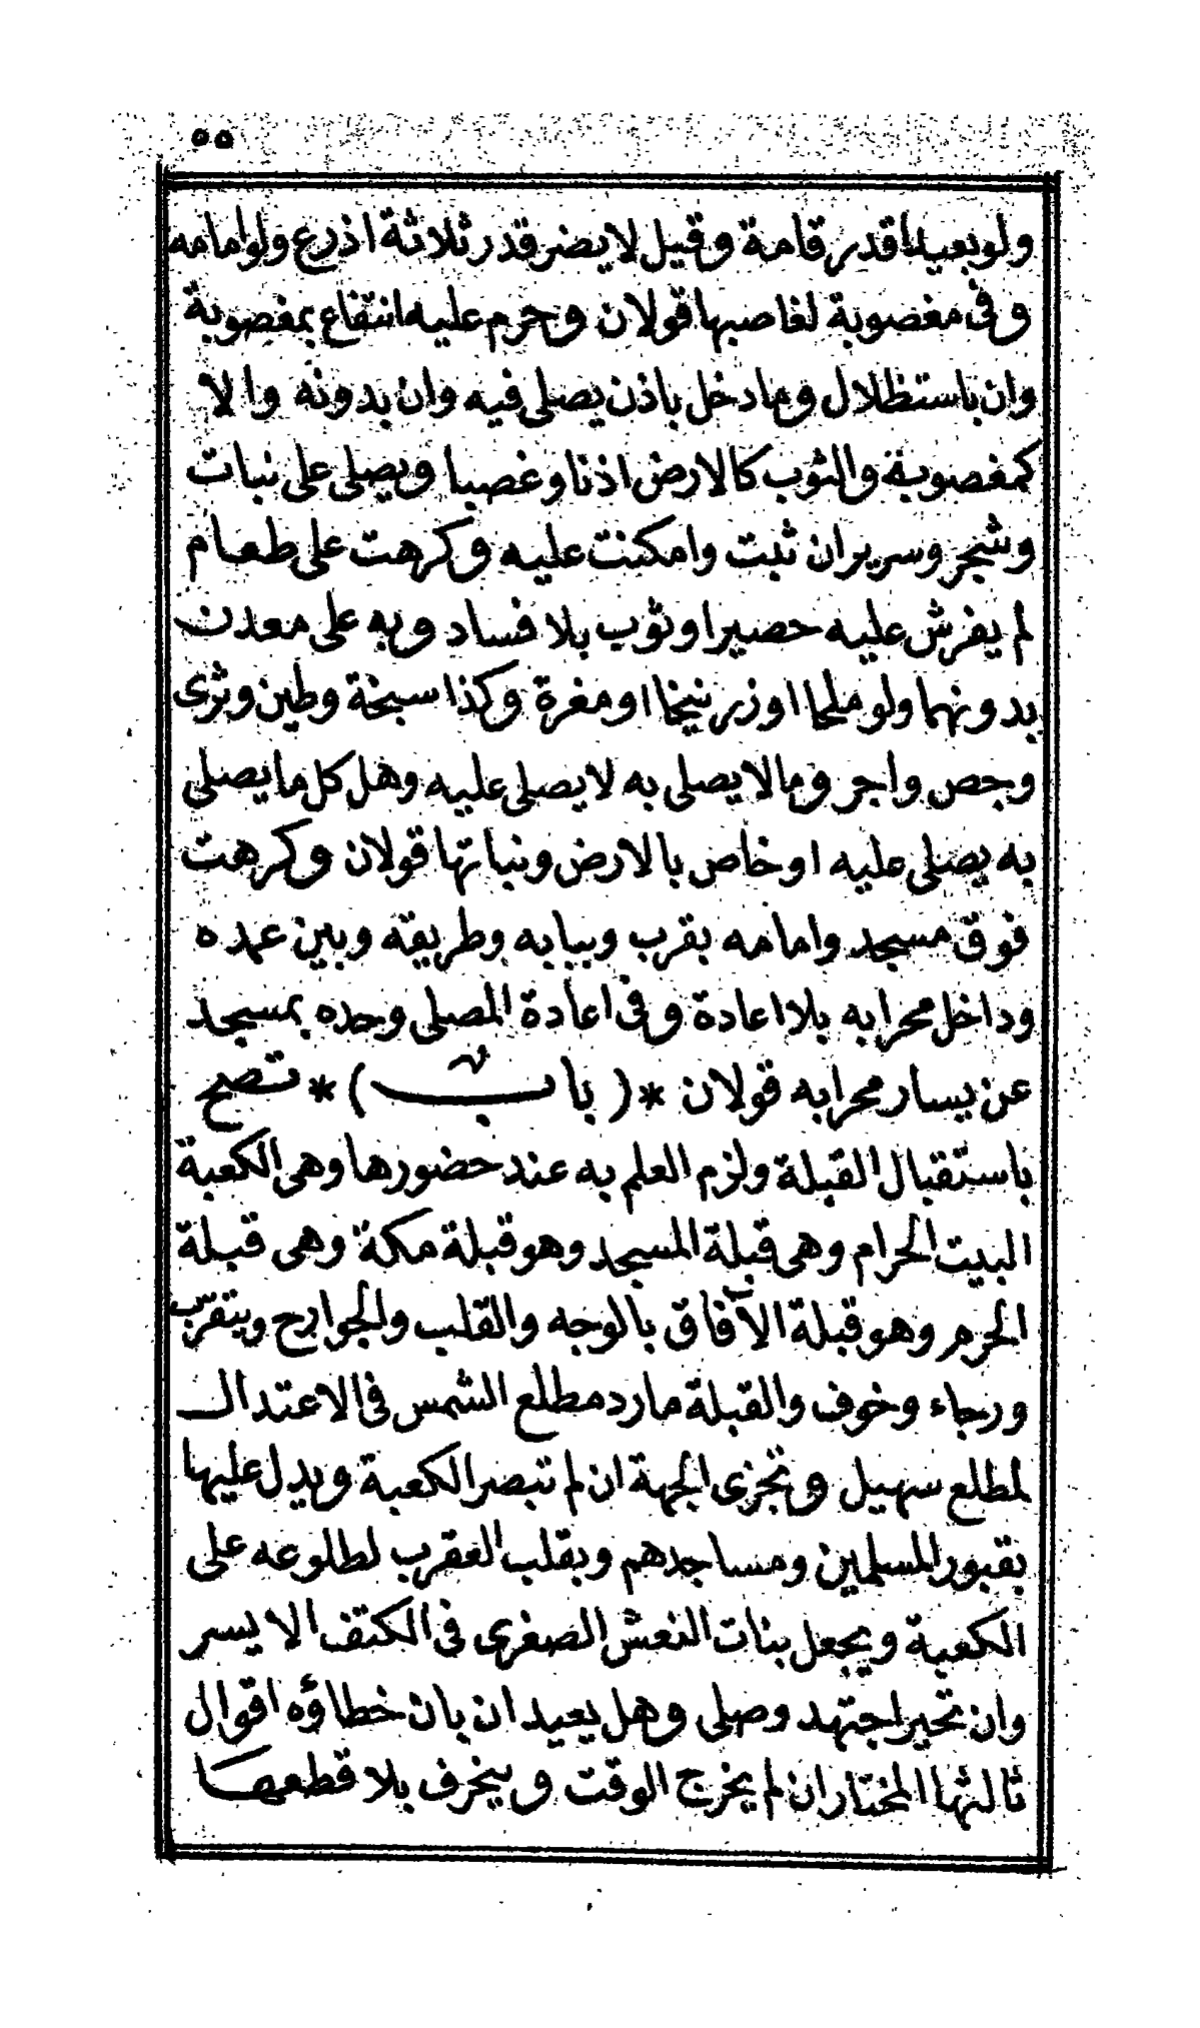 ٥٥
ولو بعيدا قدر قامة وقيل لا يضر قدر ثلاثة اذرع ولو امامه
وفى مغصوبة لغاصبها قولان وحرم عليه انتفاع بمغصوبة
وان باستظلال وما دخل باذن يصلى فيه وان بدونه والا
كمغصوبة والثوب كالارض اذنا وغصبا ويصلى على نبات
وشجر وسرير ان ثبت وامكنت عليه وكرهت على طعام
لم يفرش عليه حصير او ثوب بلا فساد وبه على معدن
بدونهما ولو ملحا او زرنيخا او مغرة وكذا سبخة وطين وثرى
وجص واجر وما لا يصلى به لا يصلى عليه وهل كل ما يصلى
به يصلى عليه او خاص بالارض ونباتها قولان وكرهت
فوق مسجد وامامه بقرب وببابه وطريقه وبين عمده
وداخل محرابه بلا اعادة وفى اعادة المصلى وحده بمسجد
عن يسار محرابه قولان *( باب )* تصح
باستقبال القبلة ولزم العلم به عند حضورها وهى الكعبة
البيت الحرام وهى قبلة المسجد وهو قبلة مكة وهى قبلة
الحرم وهو قبلة الآفاق بالوجه والقلب والجوارح وبتقرب
ورجاء وخوف والقبلة ما رد مطلع الشمس فى الاعتدال
لمطلع سهيل وتجزى الجهة ان لم تبصر الكعبة ويدل عليها
بقبور المسلمين ومساجدهم وبقلب العقرب لطلوعه على
الكعبة ويجعل بنات النعش الصغرى فى الكتف الايسر
وان تحير اجتهد وصلى وهل يعيد ان بان خطاؤه اقوال
ثالثها المختار ان لم يخرج الوقت وينحرف بلا قطعها